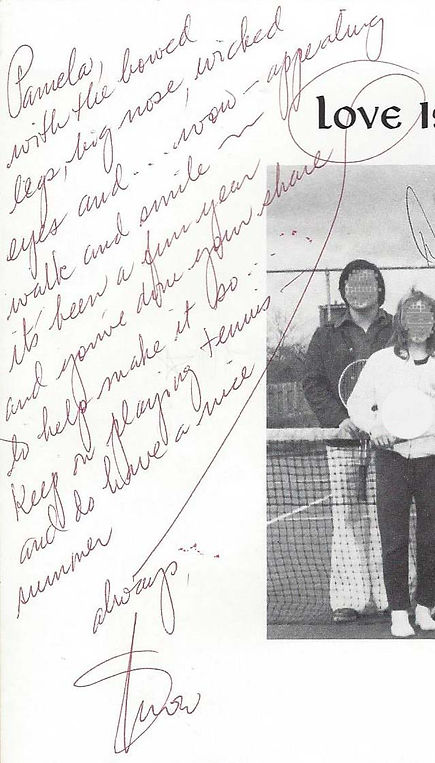 Pamela,
with the bowed
legs, big nose, wicked
eyes and... wow - appealing
walk and smile ~
it's been a fun year
and you've done your share
to help make it so.....
Keep on playing tennis -
and do have a nice
summer
always...
LOVE IS